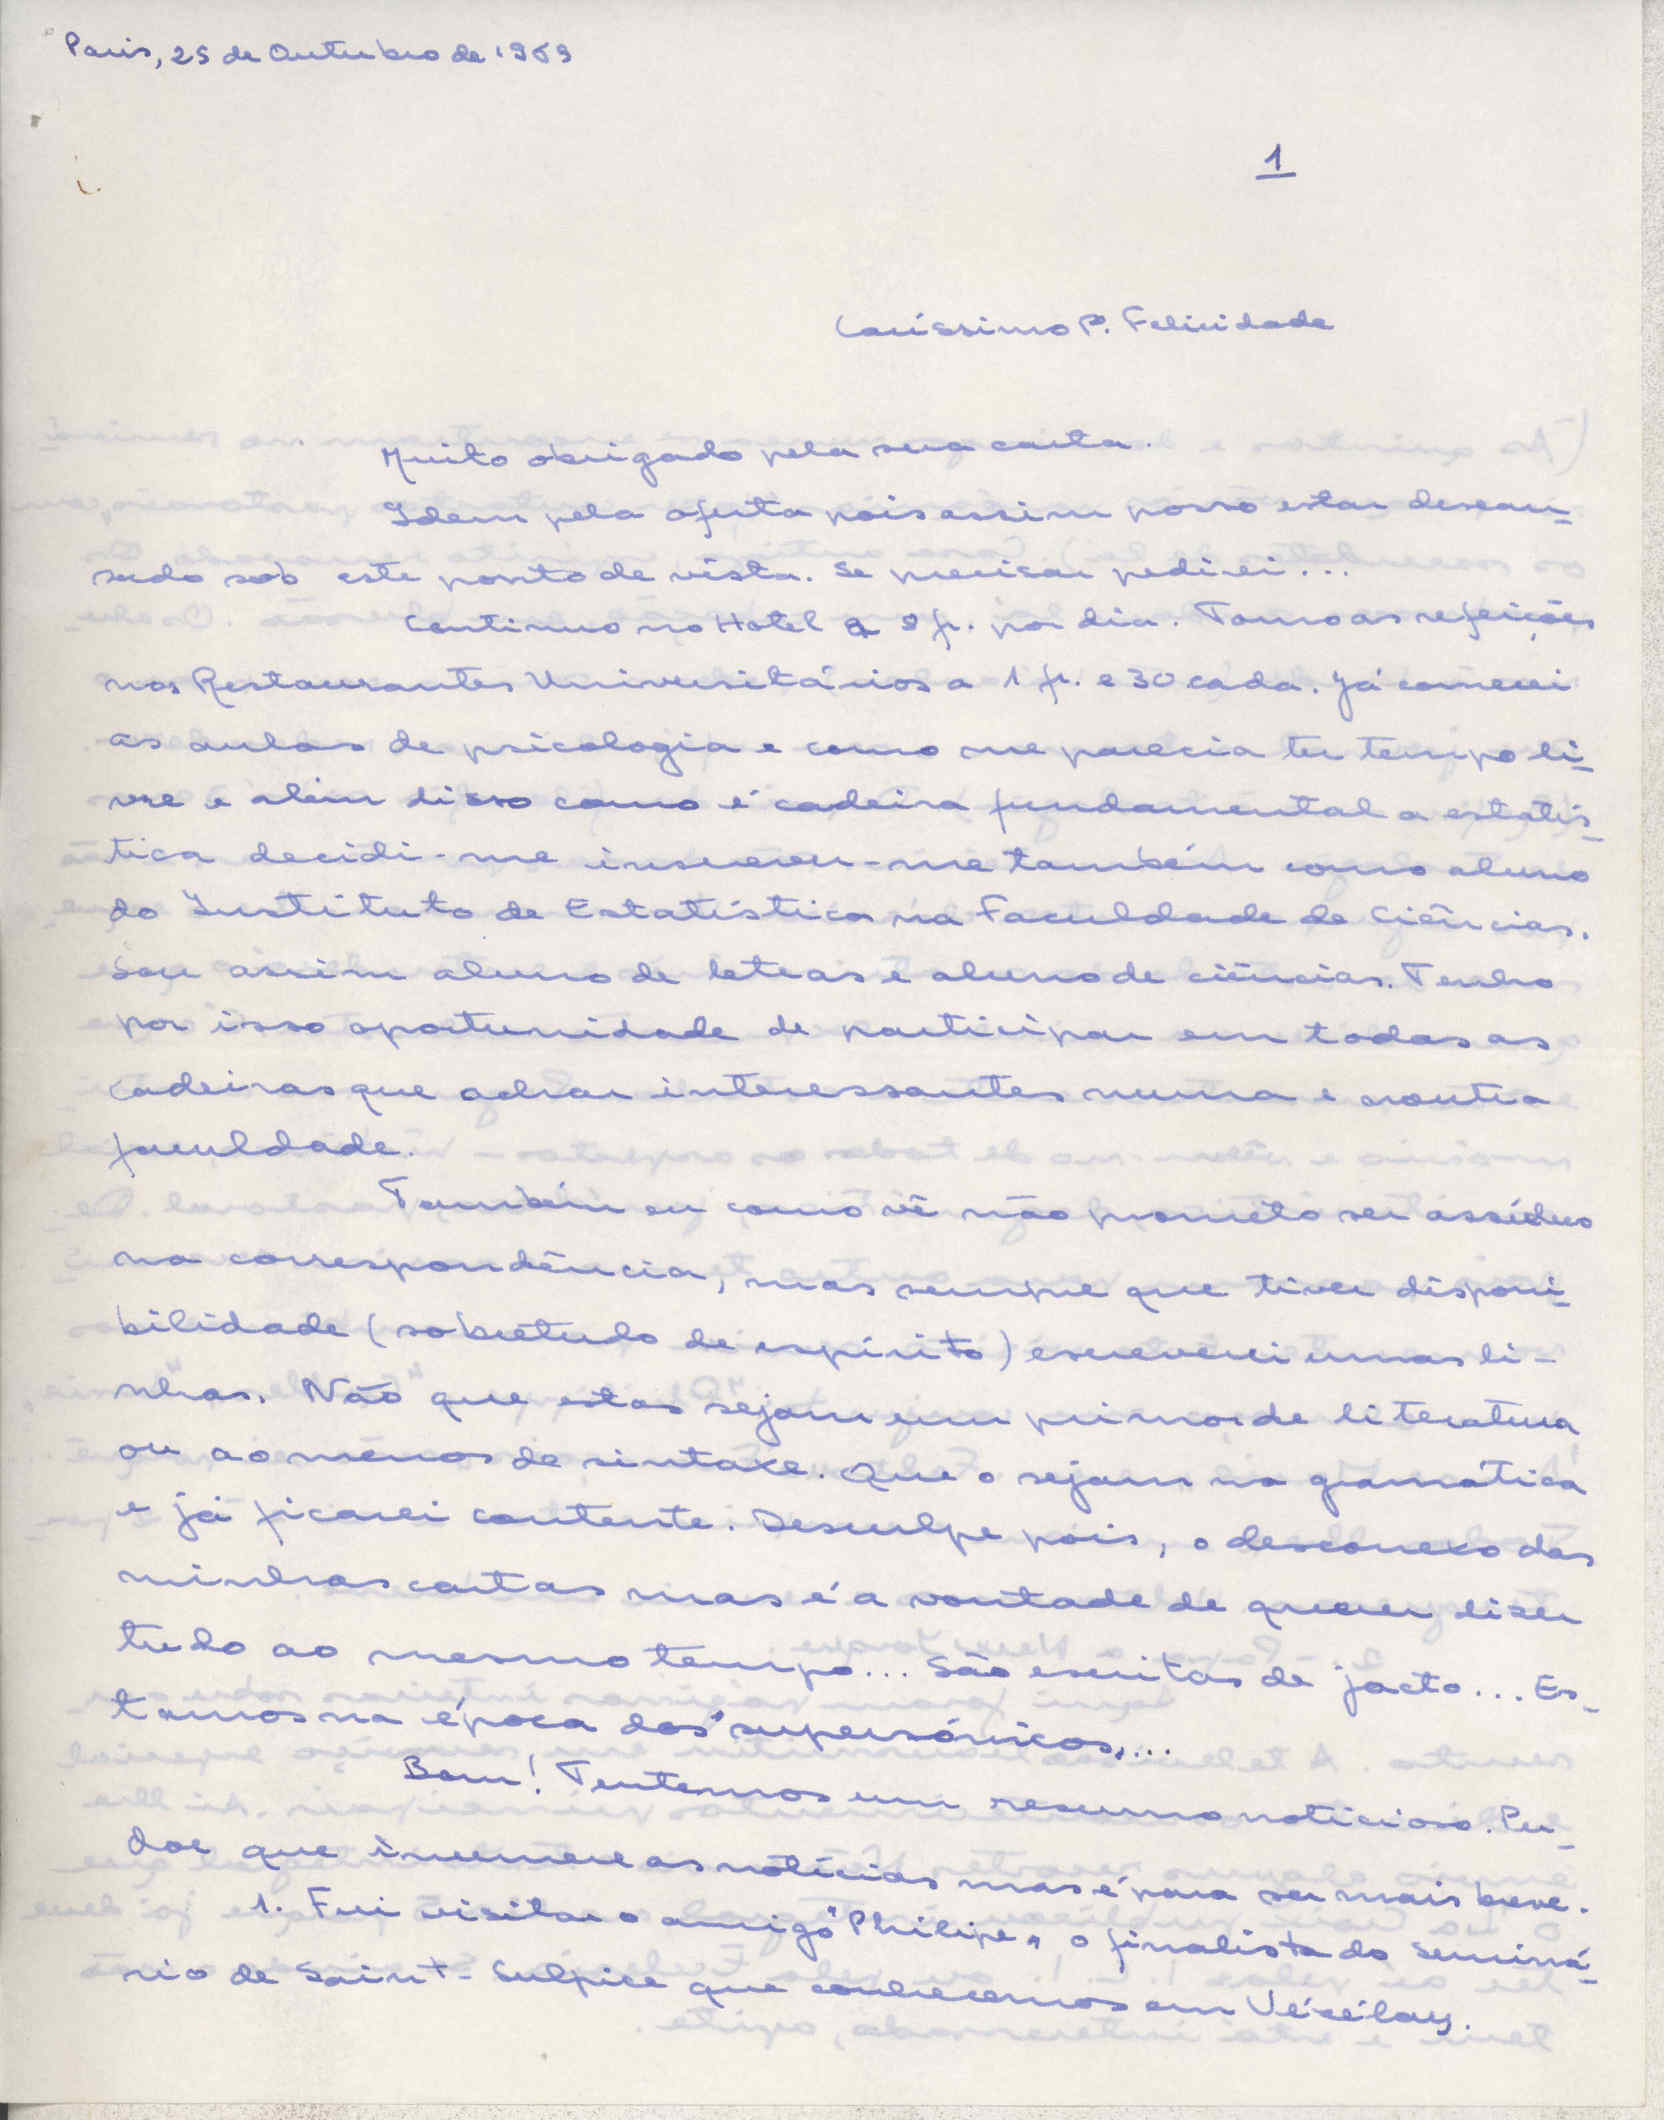 Paris, 25 de Outubro de 1969
1
Caríssimo P. Felicidade
Muito obrigado pela sua carta.
Idem pela oferta pois assim posso estar descan-
sado sob este ponto de vista. Se precisar pedirei...
Continuo no Hotel a 9 fr. por dia. Tomo as refeições
nos Restaurantes Universitários a 1 fr. e 30 cada. Já comecei
as aulas de psicologia e como me parecia ter tempo li-
vre e além disso como é cadeira fundamental a estatís-
tica decidi-me inscrever-me também como aluno
do Instituto de Estatística na Faculdade de Ciências.
Sou assim aluno de letras e aluno de ciências. Tenho
por isso oportunidade de participar em todas as
cadeiras que achar interessantes numa e noutra
faculdade.
Também eu como vê não prometo ser assíduo
na correspondência, mas sempre que tiver disponi-
bilidade (sobretudo de espírito) escreverei umas li-
nhas. Não que estas sejam um primor de literatura
ou ao menos de sintaxe. Que o sejam na gramática
e já ficarei contente. Desculpe pois, o desconexo das
minhas cartas mas é a vontade de querer dizer
tudo ao mesmo tempo... São escritas de jacto... Es-
tamos na época dos "supersónicos"...
Bom! Tentemos um resumo noticioso. Per-
doe que inumere as notícias mas é para ser mais breve.
1. Fui visitar o amigo "Philipe" o finalista do Seminá-
rio de Saint-Sulpice que conhecemos em Vézélay.